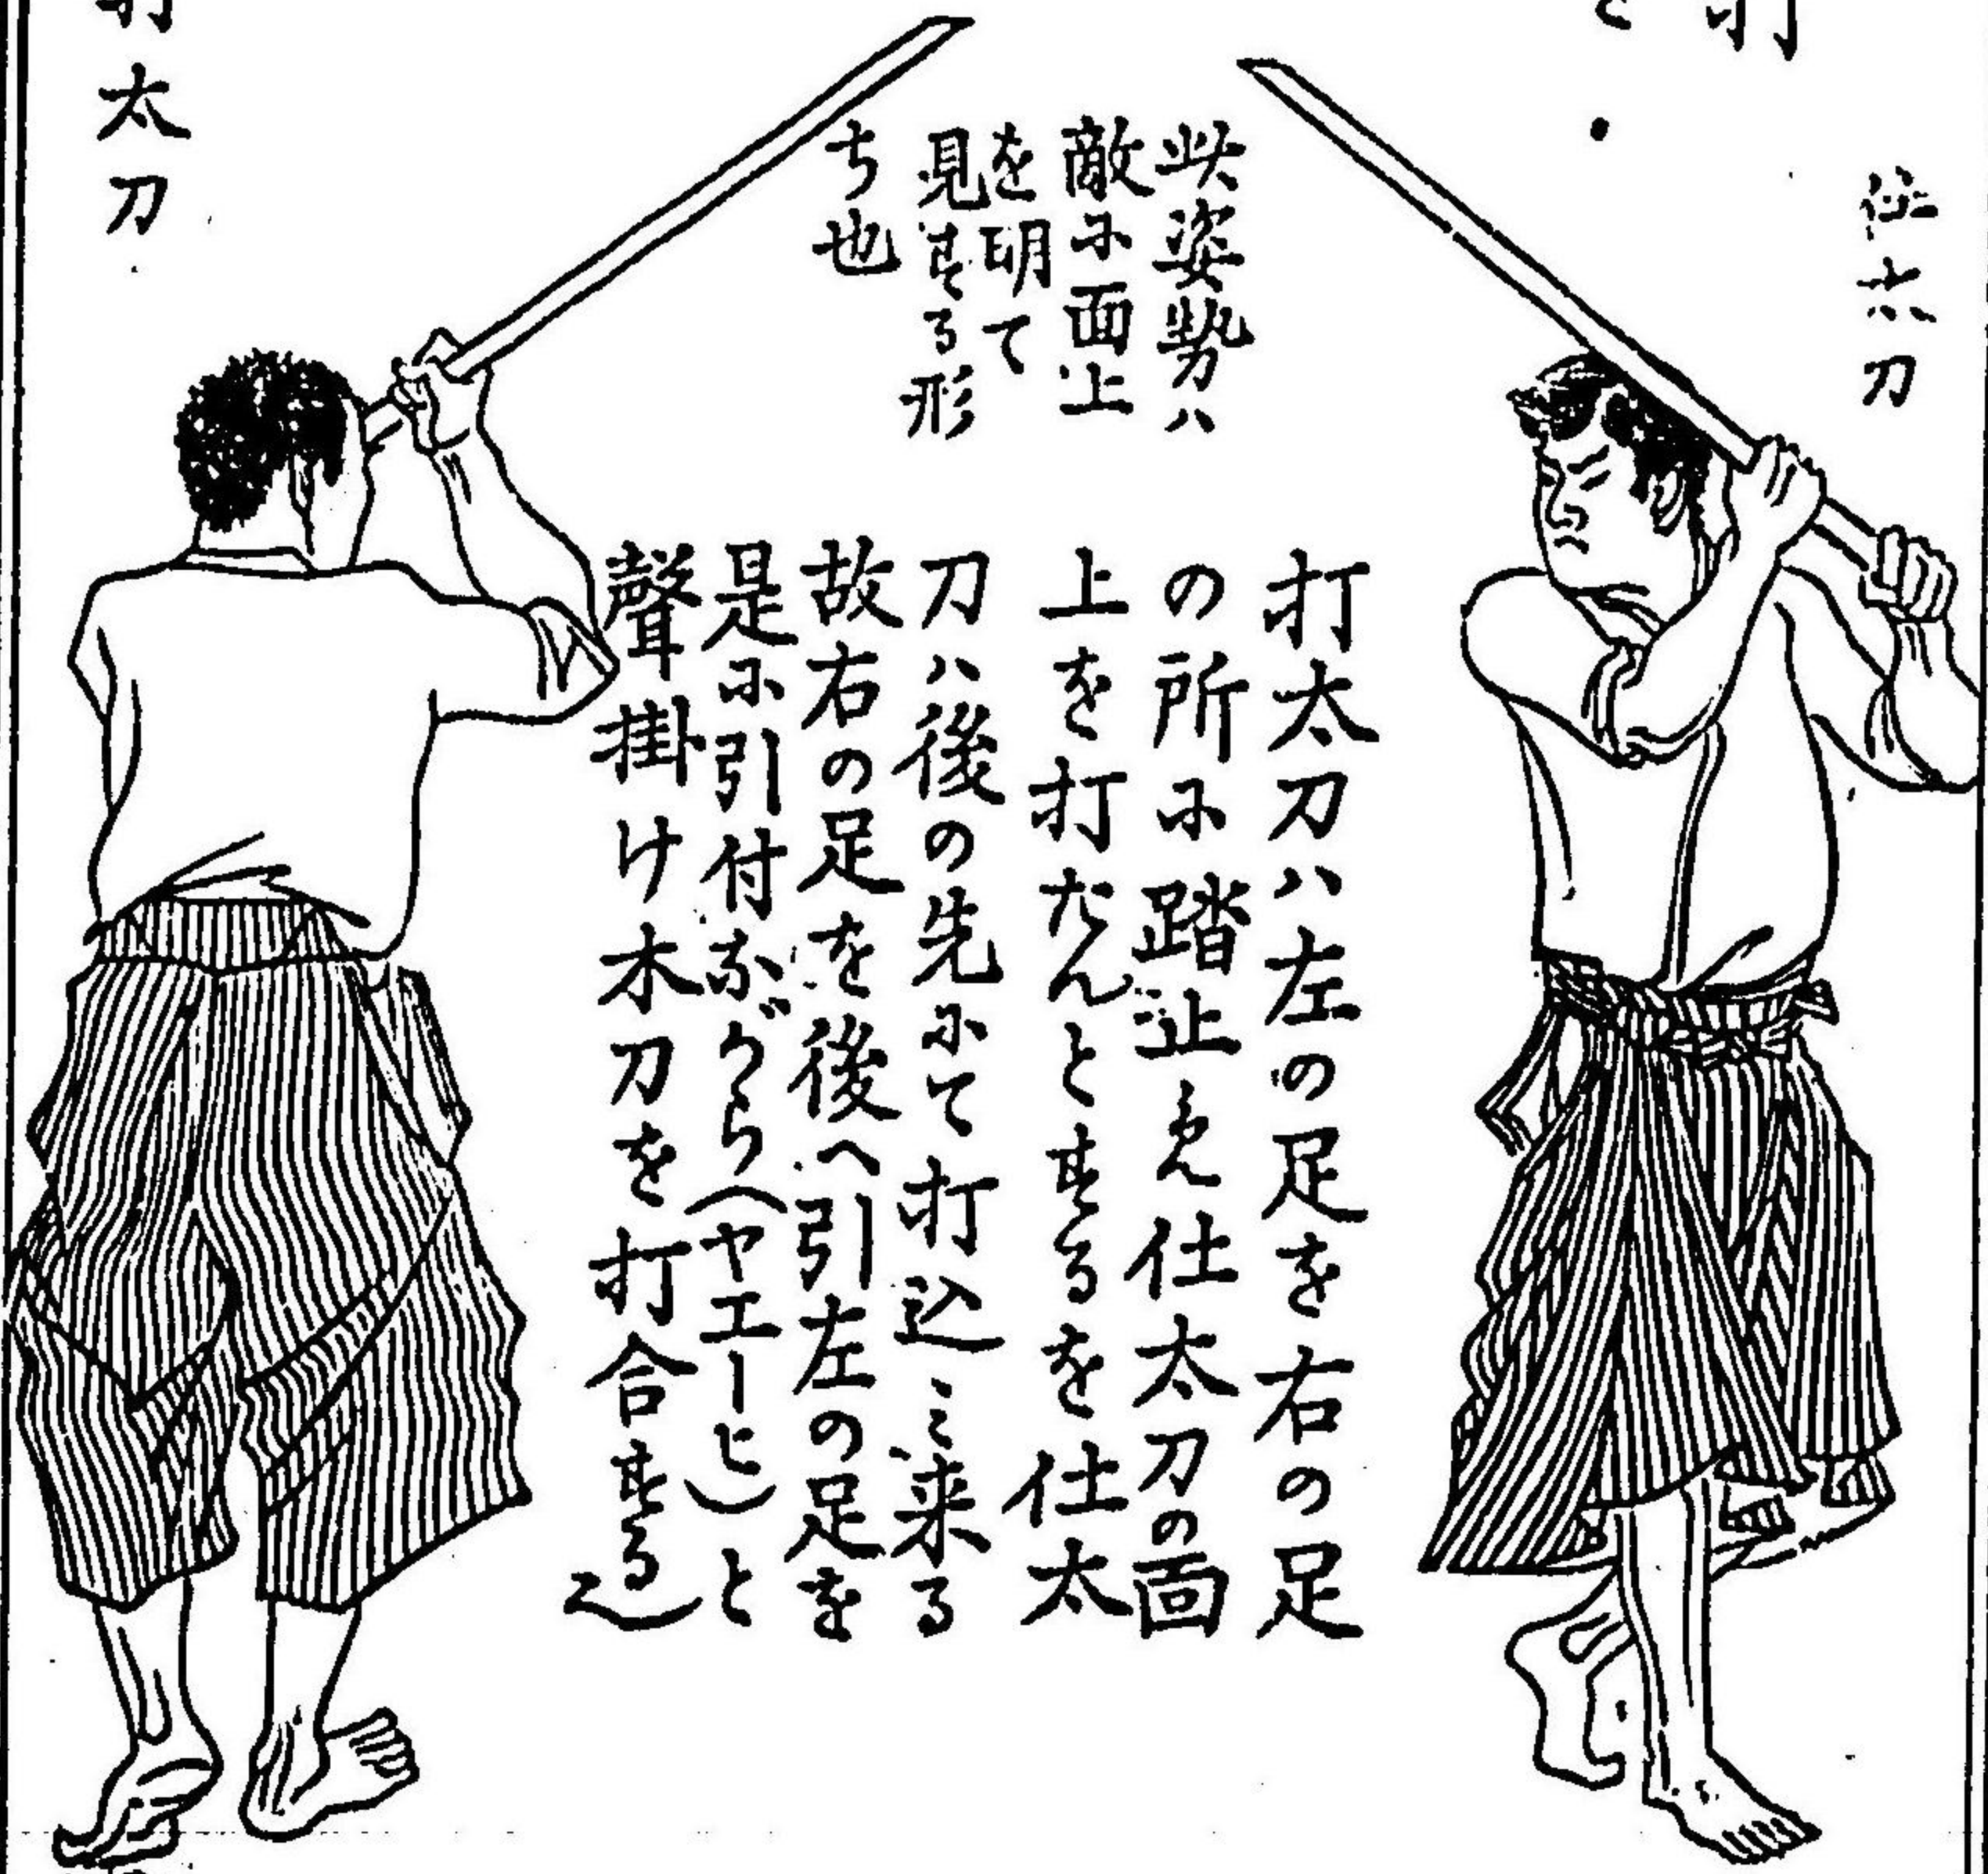 打
仕太刀
此姿勢ハ
敵に面上
を明て
見する形
ち也
打太刀ハ左の足を右の足
の所に踏止め仕太刀の面
上を打たんとするを仕太
刀ハ後の先にて打込ミ来る
故右の足を後へ引左の足を
是に引付ながら(ヤエーヒ)と
聲掛け木刀を打合する
打太刀